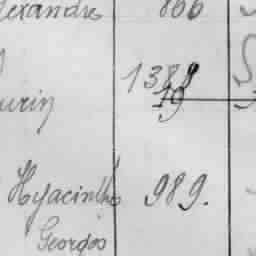 lexandre 866
1388
urin 19
Hyacinthe 989.
Georges